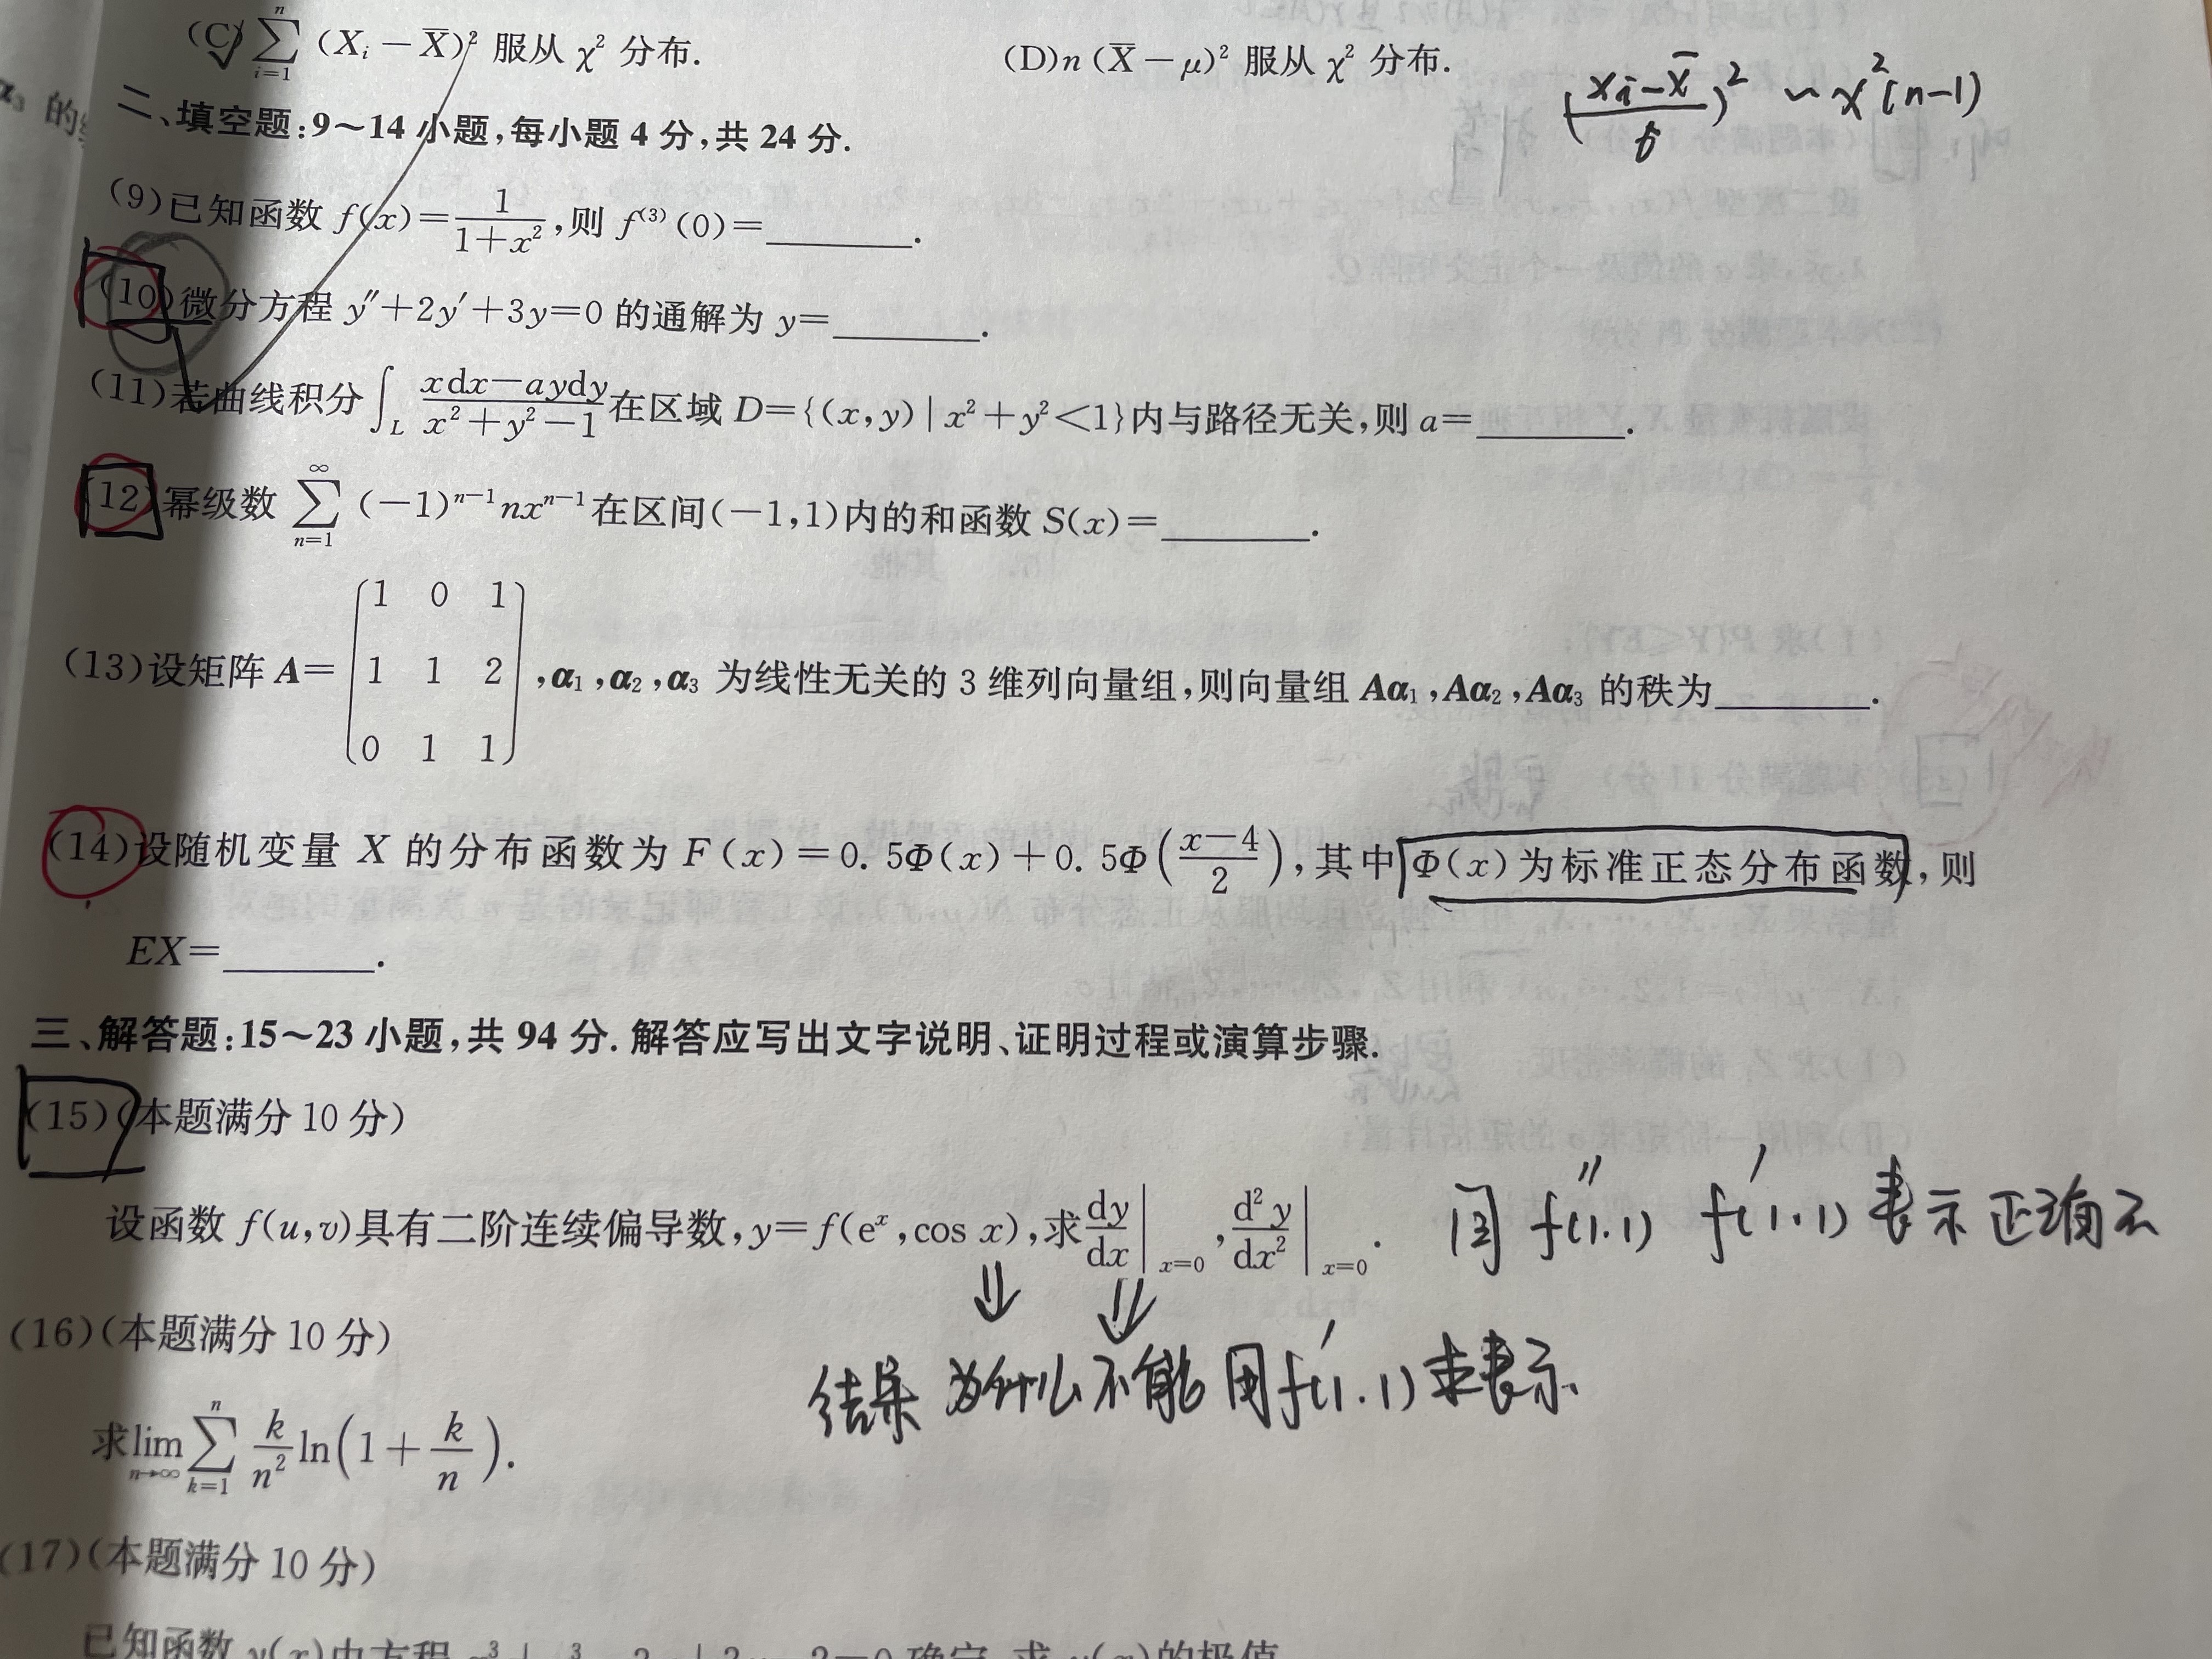 (C) $\sum_{i=1}^{n}(X_i-\overline{X})^2$ 服从 $\chi^2$ 分布.
(D) $n(\overline{X}-\mu)^2$ 服从 $\chi^2$ 分布.
$(\frac{x_i-\overline{x}}{σ})^2 \sim \chi^2(n-1)$
α₃ 的
二、填空题:9~14小题,每小题4分,共24分.
(9)已知函数 $f(x)=\frac{1}{1+x^2}$,则 $f^{(3)}(0)=$______.
(10)微分方程 $y''+2y'+3y=0$ 的通解为 $y=$______.
(11)若曲线积分 $\int_L \frac{xdx-aydy}{x^2+y^2-1}$ 在区域 $D=\{(x,y)|x^2+y^2<1\}$ 内与路径无关,则 $a=$______.
(12)幂级数 $\sum_{n=1}^{\infty}(-1)^{n-1}nx^{n-1}$ 在区间(-1,1)内的和函数 $S(x)=$______.
(13)设矩阵 $A=\begin{pmatrix}1&0&1\\1&1&2\\0&1&1\end{pmatrix}$,α₁,α₂,α₃ 为线性无关的3维列向量组,则向量组 Aα₁,Aα₂,Aα₃ 的秩为______.
(14)设随机变量 X 的分布函数为 $F(x)=0.5\Phi(x)+0.5\Phi(\frac{x-4}{2})$,其中 $\Phi(x)$ 为标准正态分布函数,则
EX=______.
三、解答题:15~23小题,共94分.解答应写出文字说明、证明过程或演算步骤.
(15)(本题满分10分)
设函数 $f(u,v)$ 具有二阶连续偏导数,$y=f(e^x,\cos x)$,求 $\frac{dy}{dx}|_{x=0}$,$\frac{d^2y}{dx^2}|_{x=0}$.
用 f''(1.1) f'(1.1) 表示正确
⇓ ⇓
(16)(本题满分10分)
结果为什么不能用f'(1.1)来表示
求 $\lim_{n\to\infty}\sum_{k=1}^{n}\frac{k}{n^2}\ln(1+\frac{k}{n})$.
(17)(本题满分10分)
已知函数 y(x)由方程